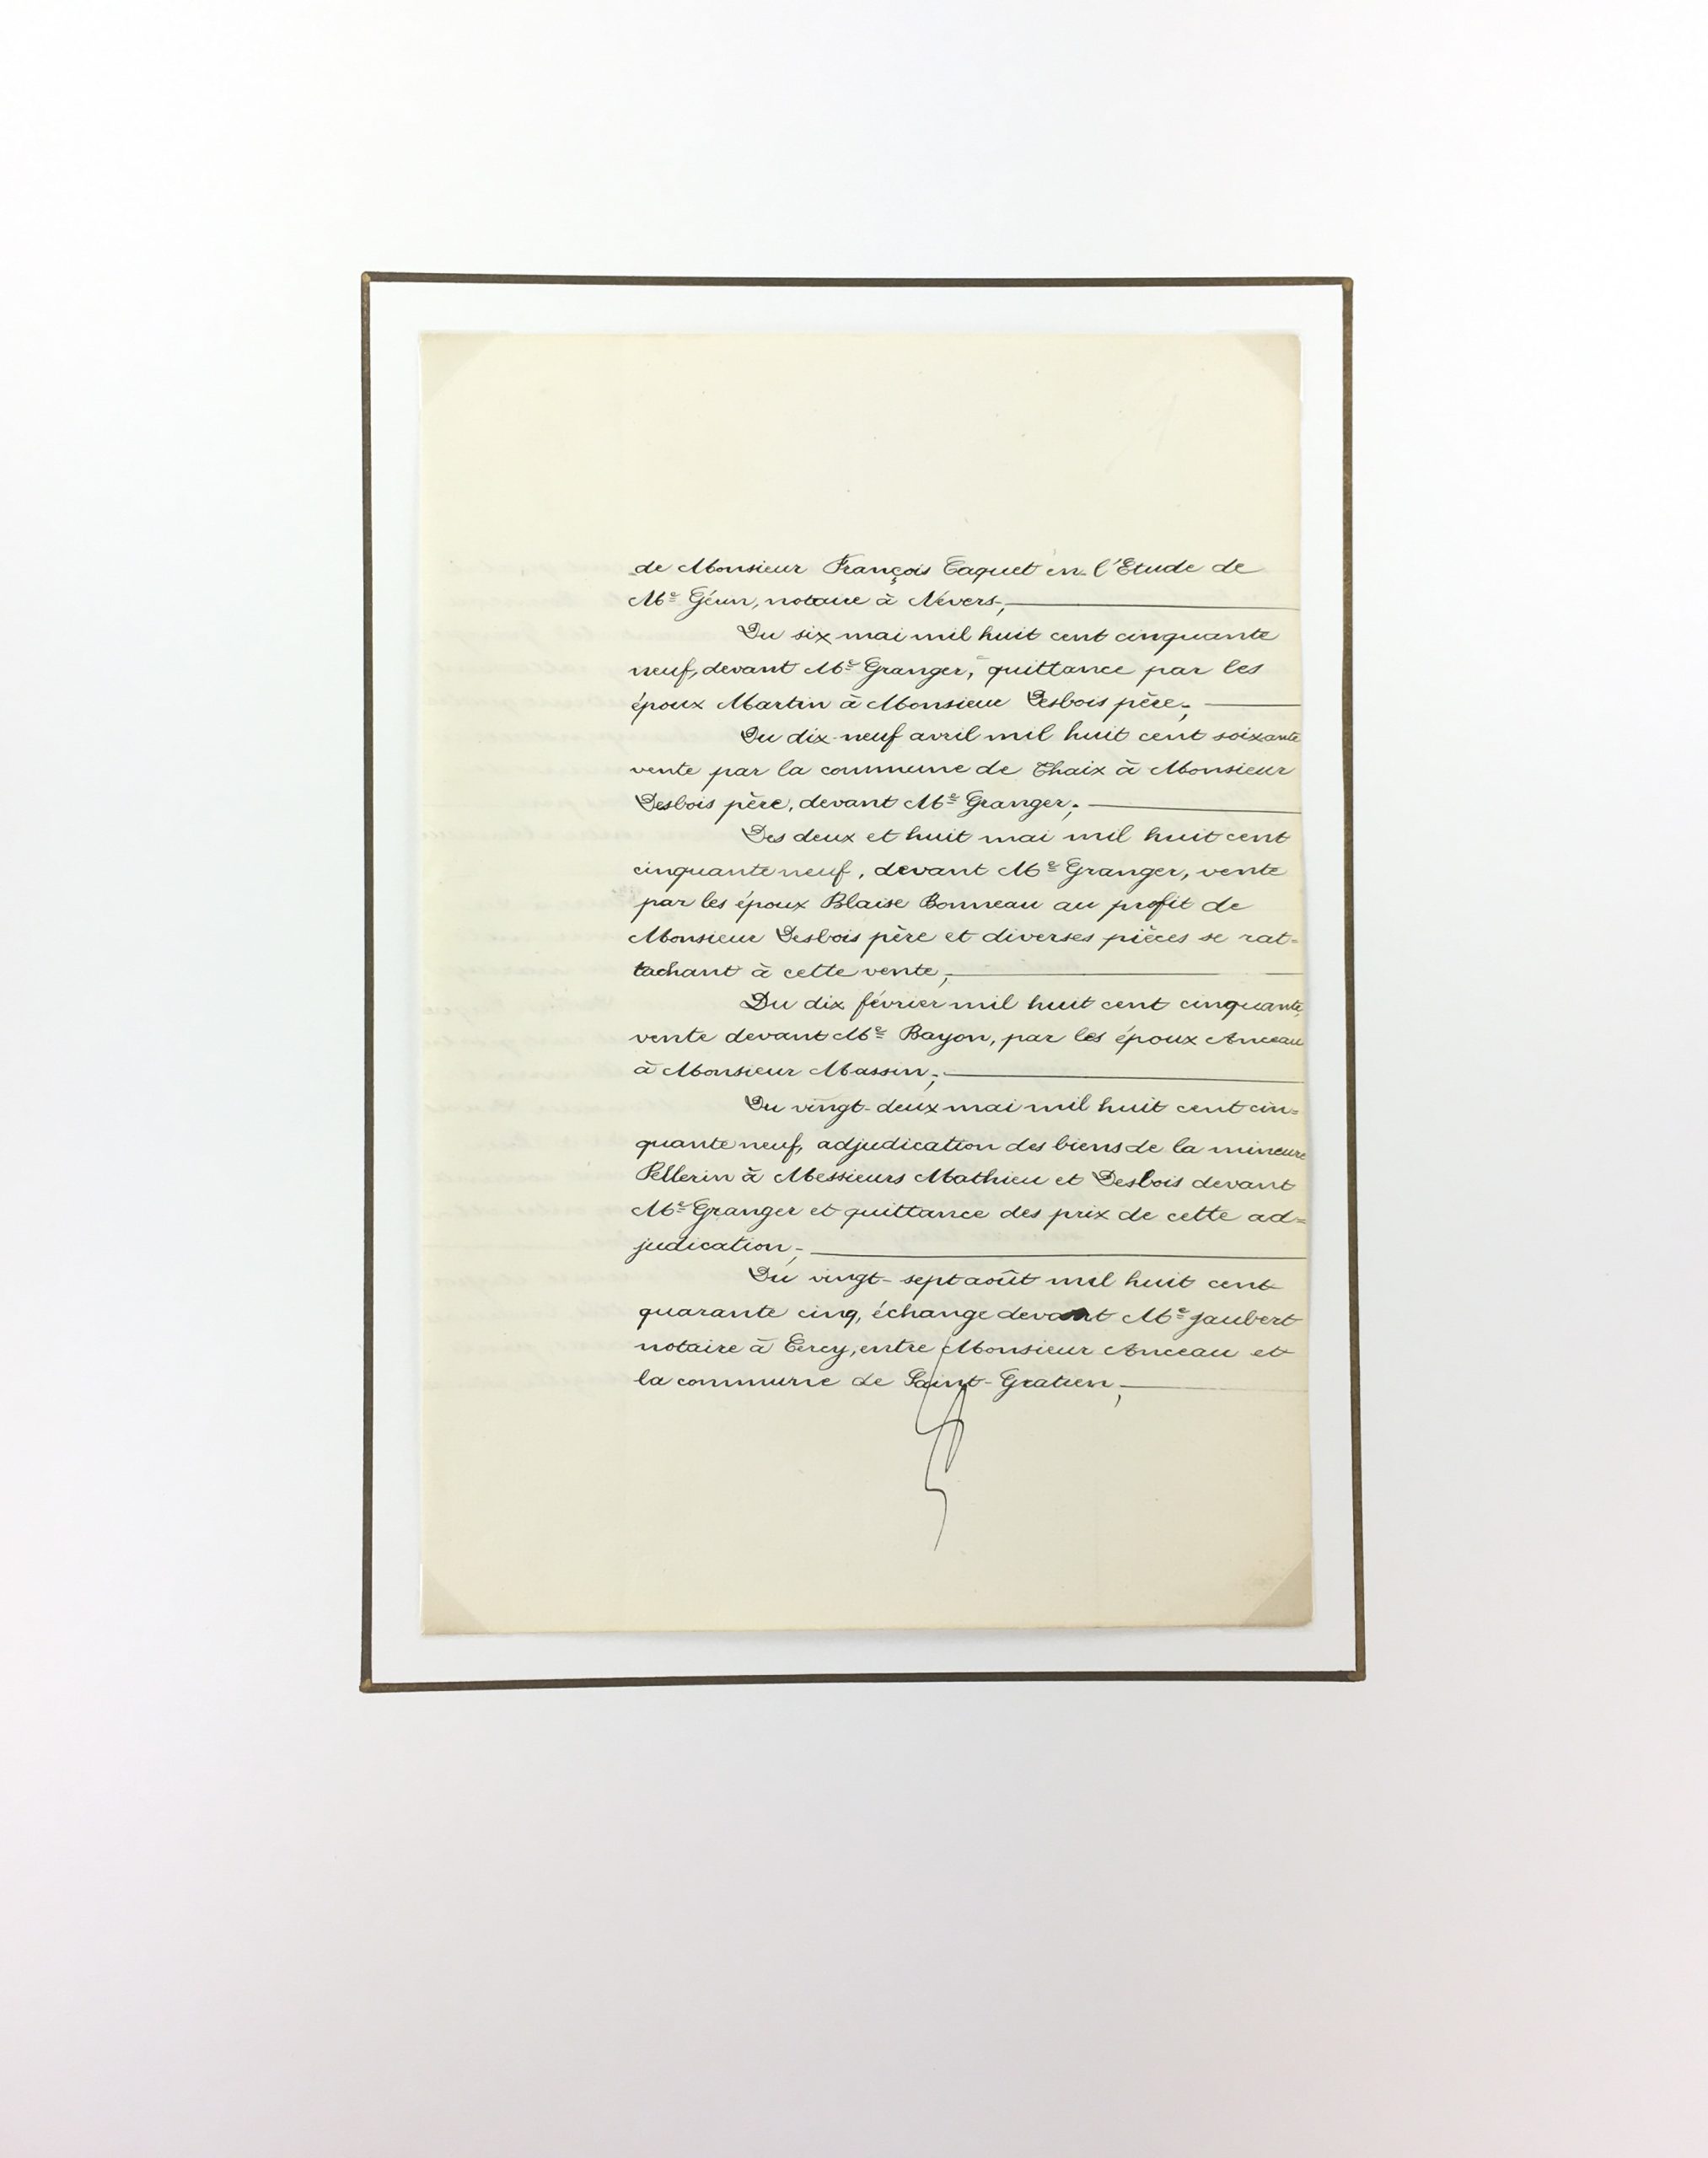 de Monsieur François Taquet en l'Etude de
Me Géun, notaire à Nevers,
Du six mai mil huit cent cinquante
neuf, devant Me Granger, quittance par les
époux Martin à Monsieur Desbois père;
Du dix-neuf avril mil huit cent soixante
vente par la commune de Thaix à Monsieur
Desbois père, devant Me Granger;
Des deux et huit mai mil huit cent
cinquante neuf, devant Me Granger, vente
par les époux Blaise Bonneau au profit de
Monsieur Desbois père et diverses pièces se rat=
tachant à cette vente;
Du dix février mil huit cent cinquante,
vente devant Me Bayon, par les époux Anceau
à Monsieur Massin;
Du vingt-deux mai mil huit cent cin=
quante neuf, adjudication des biens de la mineure
Pellerin à Messieurs Mathieu et Desbois devant
Me Granger et quittance des prix de cette ad=
judication;
Du vingt-sept août mil huit cent
quarante cinq, échange devant Me Jaubert
notaire à Cercy, entre Monsieur Anceau et
la commune de Saint-Gratien;